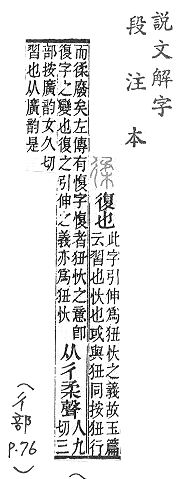 說文解字
段注本
㣯
復也
此字引伸爲狃忕之義故玉篇
云習也忕也或與狃同按狃行
而㣯廢矣左傳有愎字愎者狃忕之意卽
復字之變也復之引伸之義亦爲狃忕
从彳柔聲
人九
切三
部按廣韵女久切
習也从廣韵是
(彳部)
P.76